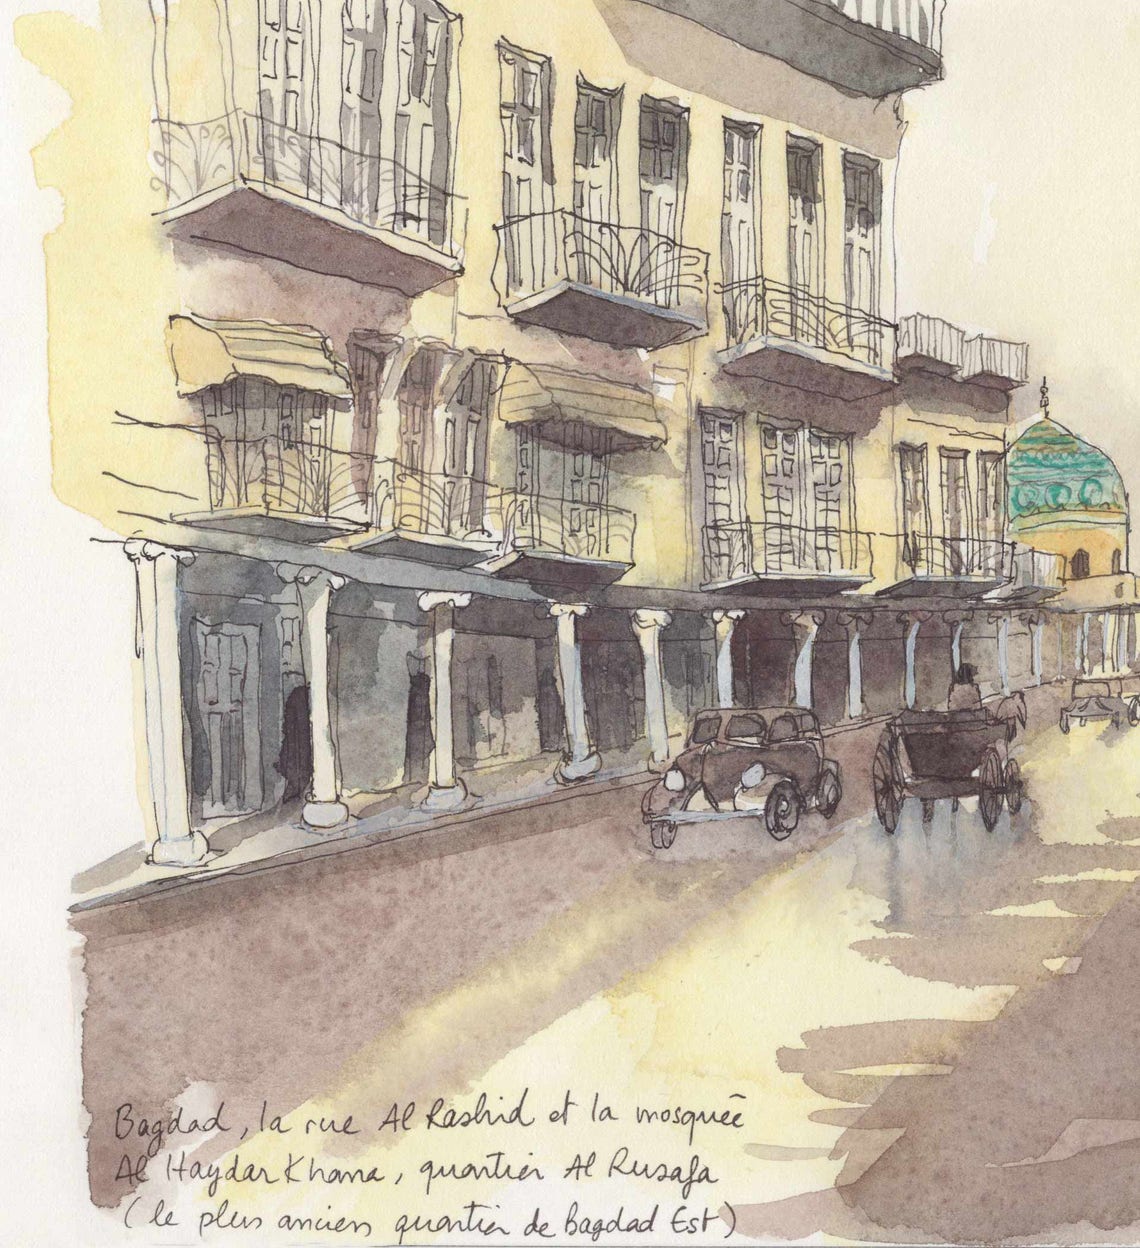 Bagdad, la rue Al Rashid et la mosquée
Al Haydar Khana, quartier Al Rusafa
(le plus ancien quartier de Bagdad Est)